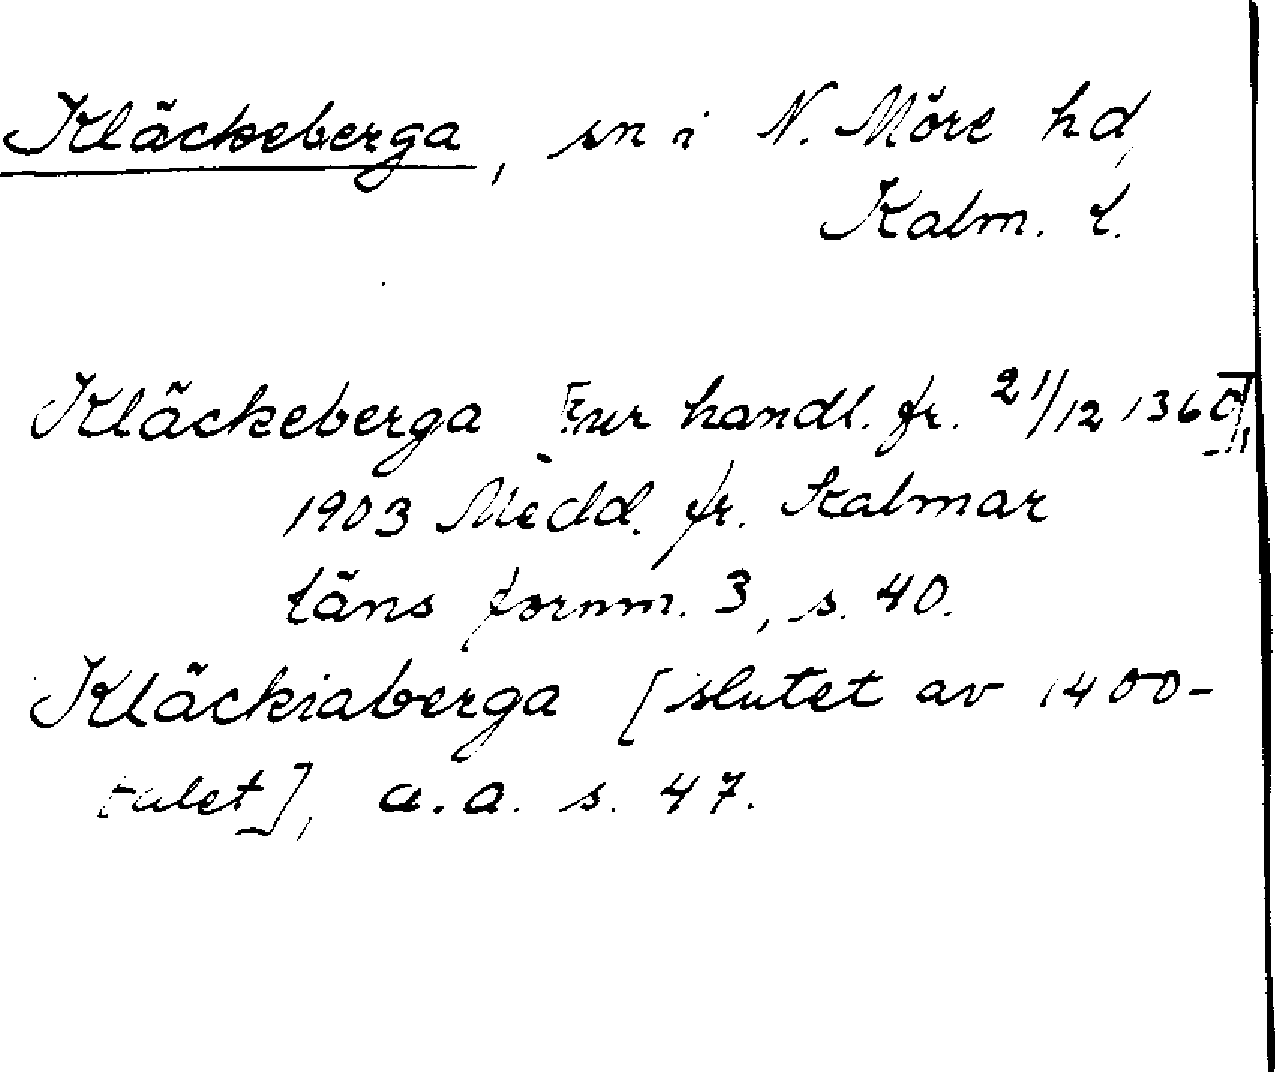 Kläckeberga, sn i N. Möre hd,
Kalm. l.
Kläckeberga [ur handl. fr. 21/12 1360],
1903 Medd. fr. Kalmar
läns fornm. 3, s. 40.
Kläckiaberga [slutet av 1400-
talet], a.a. s. 47.